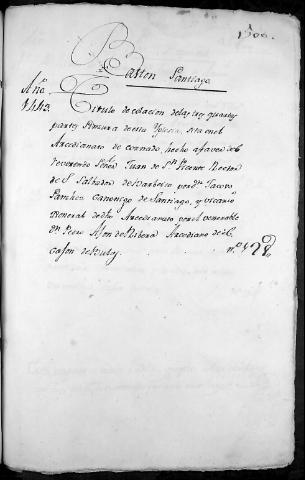 1500.
Baston Santiago
Año
1443.
Titulo de colacion de las tres quartas
partes sin cura de esta Yglesia, sita en el
Arcedianato de Cornado, hecho a favor del
Reverendo Señor Juan de Sn. Vicente Rector
de S. Salbador de por dn. Jacovo
Sanchez Canonigo de Santiago, y vicario
General de dho Arcedianato por el venerable
Dn. Pedro de Ribera Arcediano de
Caxon de Nº 28